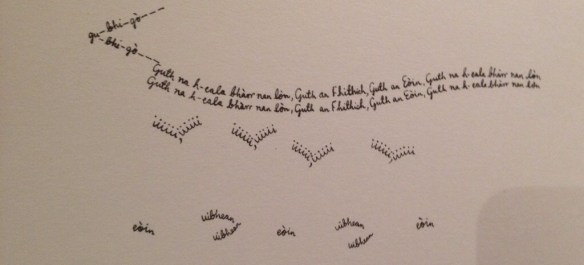 gu-bhi-gò
gu-bhi-gò
Guth na h-eala bhàrr nan lòn, Guth an Fhithich, Guth an Eòin, Guth na h-eala bhàrr nan lòn
Guth na h-eala bhàrr nan lòn, Guth an Fhithich, Guth an Eòin, Guth na h-eala bhàrr nan lòn
iiiiii, iiiiii iiiiii, iiiiii iiiiii, iiiiii iiiiii, iiiiii
eòin uibhean uibhean eòin uibhean uibhean eòin